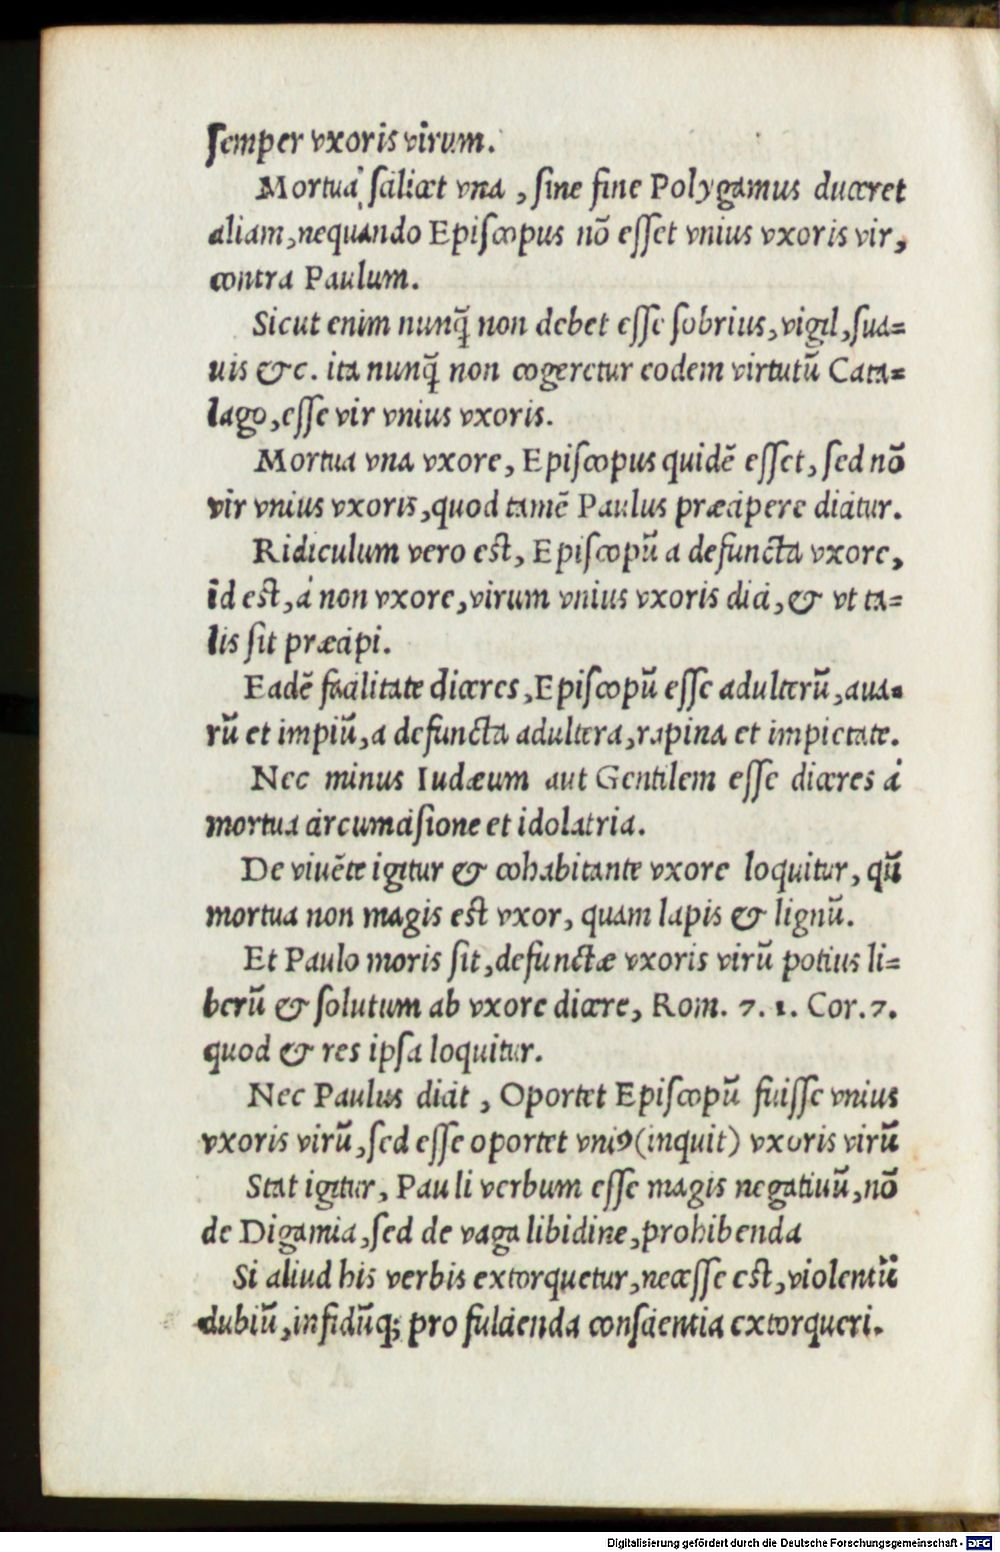 ſemper vxoris virum.
Mortua ſcilicet vna, ſine fine Polygamus duceret
aliam, nequando Epiſcopus nō eſſet vnius vxoris vir,
contra Paulum.
Sicut enim nunq̃ non debet eſſe ſobrius, vigil, ſua=
uis &c. ita nunq̃ non cogeretur eodem virtutū Cata=
lago, eſſe vir vnius vxoris.
Mortua vna vxore, Epiſcopus quidē eſſet, ſed nō
vir vnius vxoris, quod tamē Paulus præcipere dicitur.
Ridiculum vero est, Epiſcopū a defuncta vxore,
id est, á non vxore, virum vnius vxoris dici, & vt ta=
lis ſit præcipi.
Eadē facilitate diceres, Epiſcopū eſſe adulterū, aua=
rū et impiū, a defuncta adultera, rapina et impietate.
Nec minus Iudæum aut Gentilem eſſe diceres á
mortua circumciſione et idolatria.
De viuēte igitur & cohabitante vxore loquitur, qū
mortua non magis est vxor, quam lapis & lignū.
Et Paulo moris ſit, defunctæ vxoris virū potius li=
berū & ſolutum ab vxore dicere, Rom. 7. 1. Cor. 7.
quod & res ipſa loquitur.
Nec Paulus dicit, Oportet Epiſcopū fuiſſe vnius
vxoris virū, ſed eſſe oportet vniꝰ (inquit) vxoris virū
Stat igitur, Pauli verbum eſſe magis negatiuū, nō
de Digamia, ſed de vaga libidine, prohibenda
Si aliud his verbis extorquetur, neceſſe est, violentū
dubiū, infidūq; pro fulcienda conſcientia extorqueri.
Digitalisierung gefördert durch die Deutsche Forschungsgemeinschaft - DFG